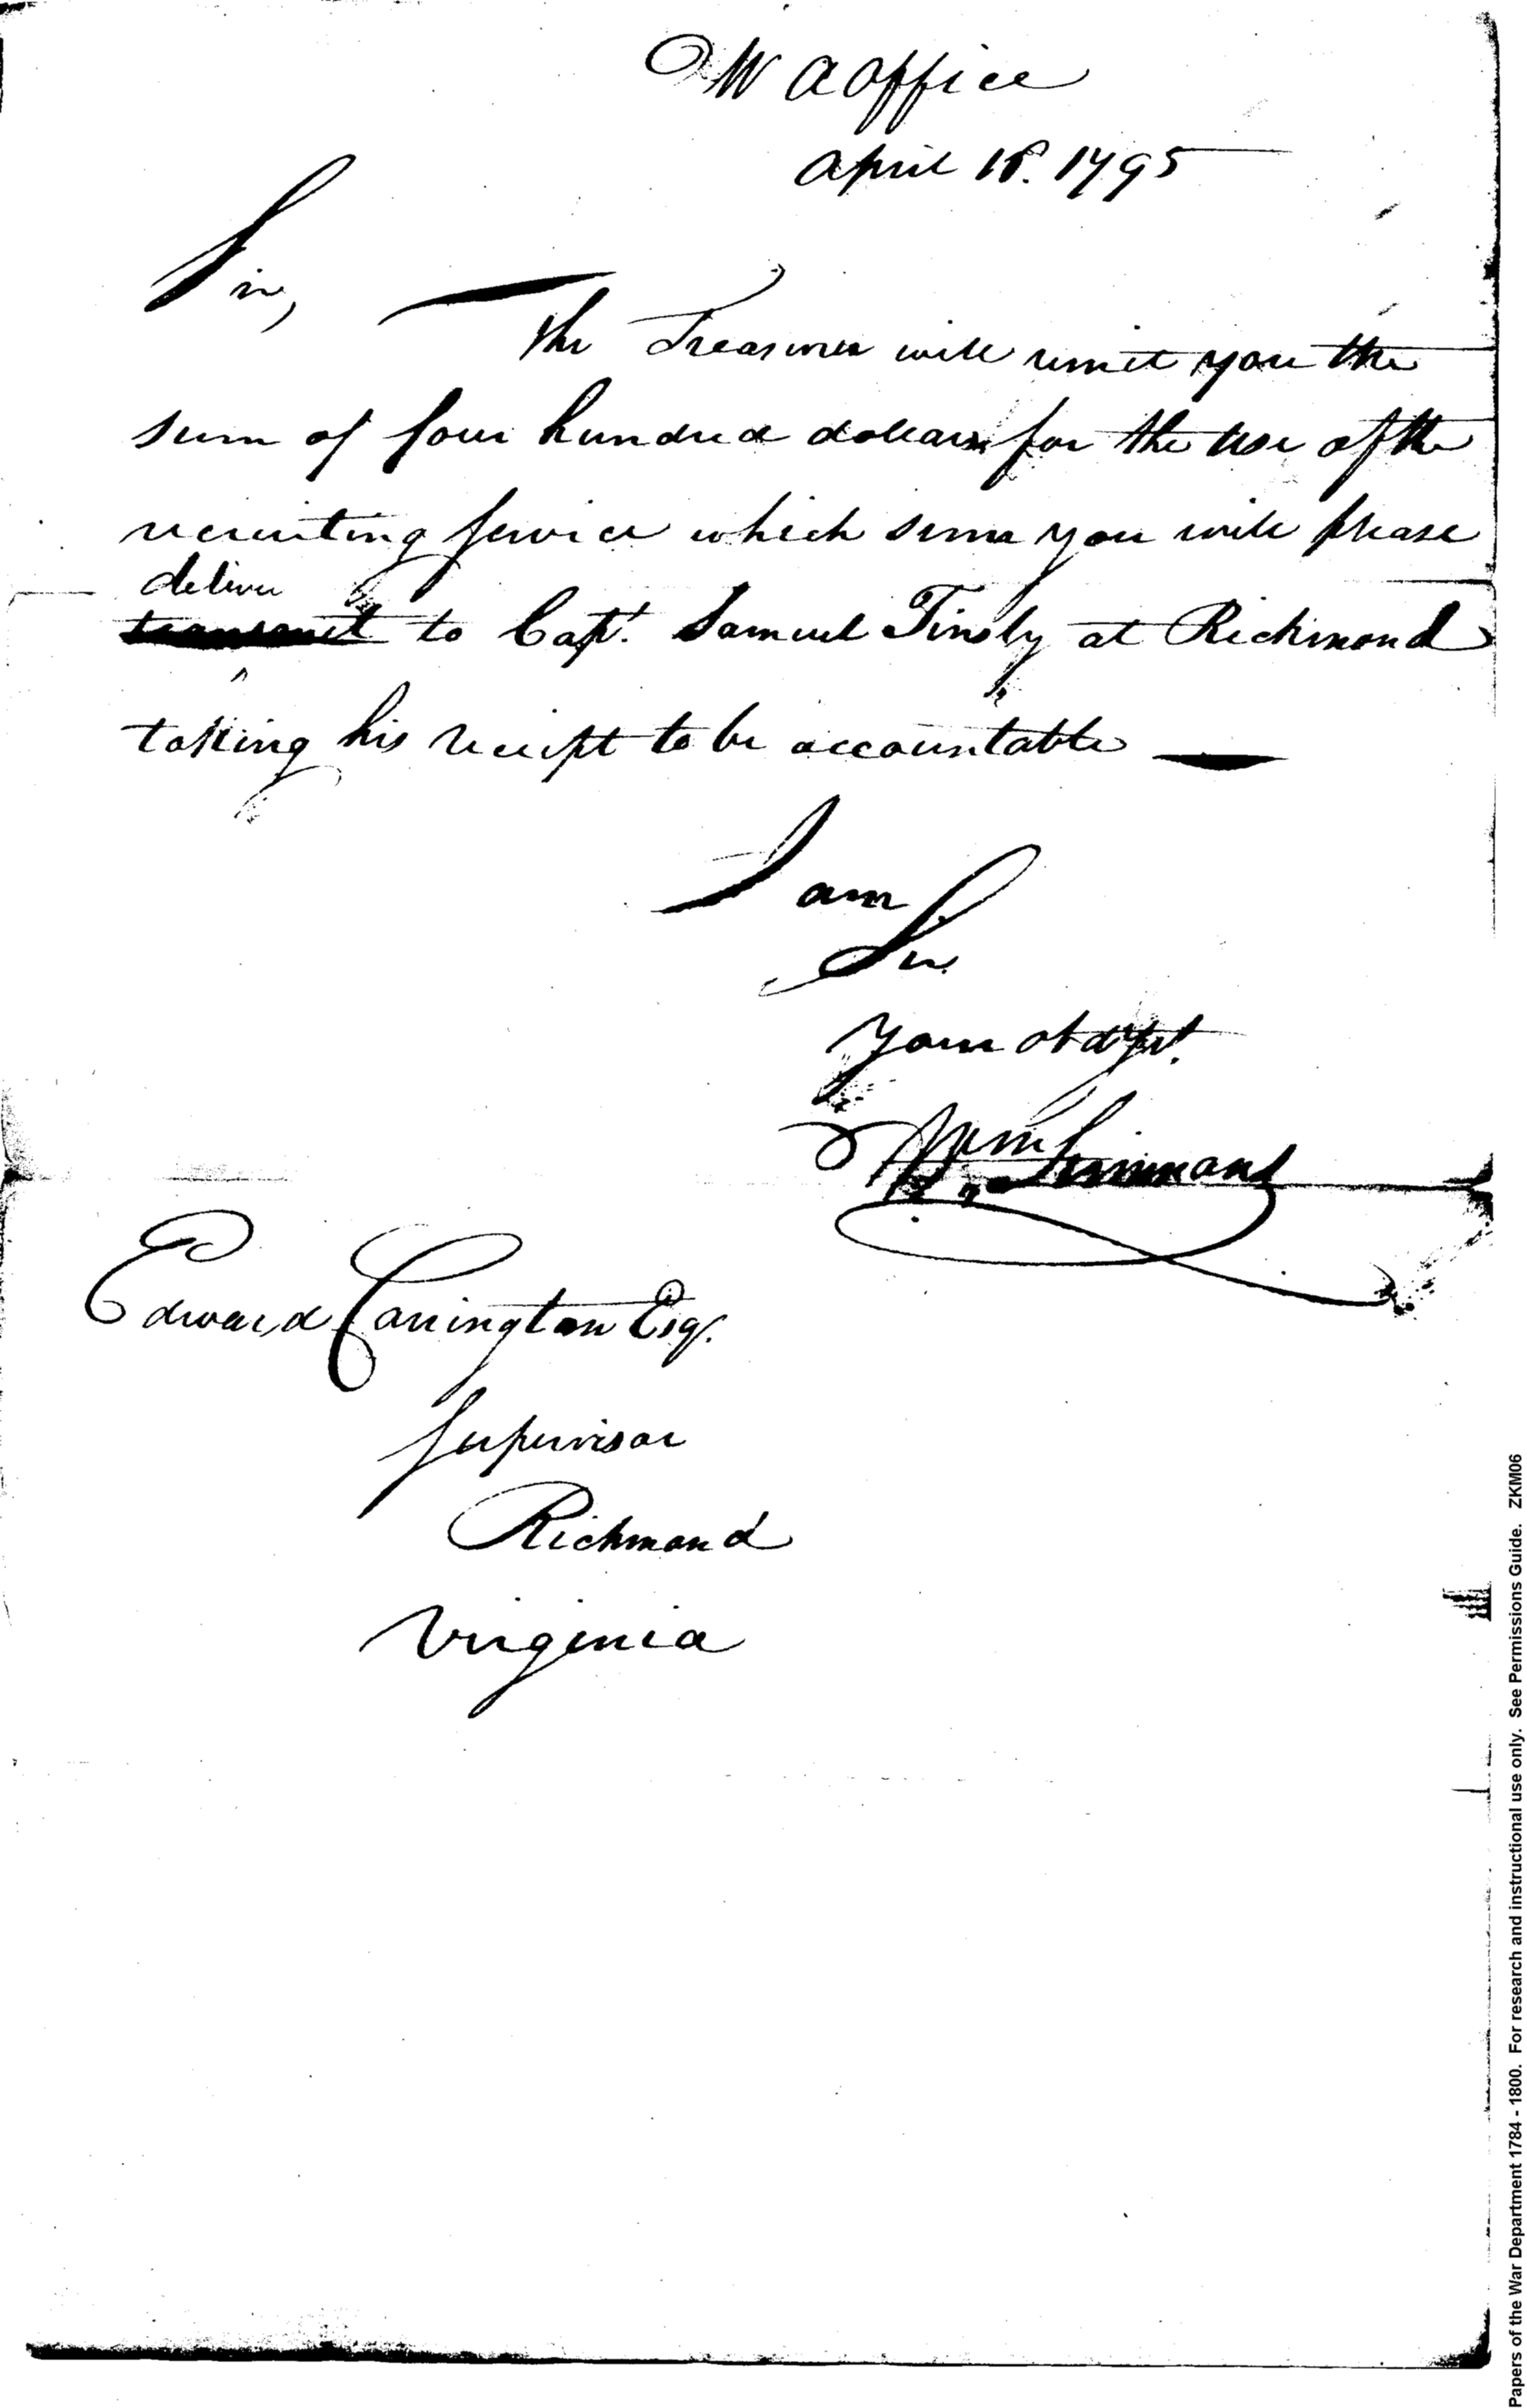 W A Office
April 18. 1795
Sir,
The Treasurer will remit you the
sum of four hundred dollars for the use of the
recruiting service which sum you will please
deliver
transmit to Capt. Samuel Tinsly at Richmond
taking his receipt to be accountable
I am
Sir
Your obd
Wm Simmons
Edward Carrington Esq.
Supervisor
Richmond
Virginia
Papers of the War Department 1784 - 1800. For research and instructional use only. See Permissions Guide. ZKM06